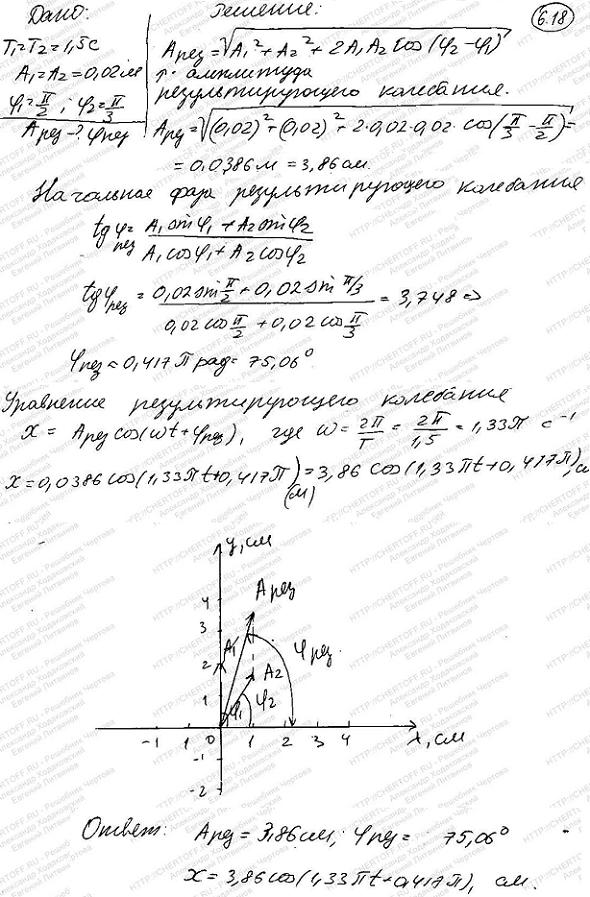 Дано:
Решение:
6.18
T₁=T₂=1,5с
A₁=A₂=0,02м
φ₁=π/2; φ₂=π/3
Aрез-? φрез
Aрез=√(A₁²+A₂²+2A₁A₂cos(φ₂-φ₁))
амплитуда
результирующего колебания.
Aрез=√((0,02)²+(0,02)²+2·0,02·0,02·cos(π/3-π/2))=
=0,0386м=3,86см.
Начальная фаза результирующего колебания
tgφрез=(A₁sinφ₁+A₂sinφ₂)/(A₁cosφ₁+A₂cosφ₂)
tgφрез=(0,02sin π/2+0,02sin π/3)/(0,02cos π/2+0,02cos π/3)=3,748⇒
φрез=0,417π рад=75,06°
Уравнение результирующего колебания
x=Aрезcos(ωt+φрез), где ω=2π/T=2π/1,5=1,33π с⁻¹
x=0,0386cos(1,33πt+0,417π)=3,86cos(1,33πt+0,417π), см
(м)
y, см
Aрез
4
3
A₁
φрез
2
A₂
1
φ₁
φ₂
-1 1 0 1 2 3 4 x, см
-1
-2
Ответ: Aрез=3,86см; φрез= 75,06°
x=3,86cos(1,33πt+0,417π), см.
HTTP://CHERTOFF.RU - Решебник Чертова
Александр Ходановский
Евгений Литвинов